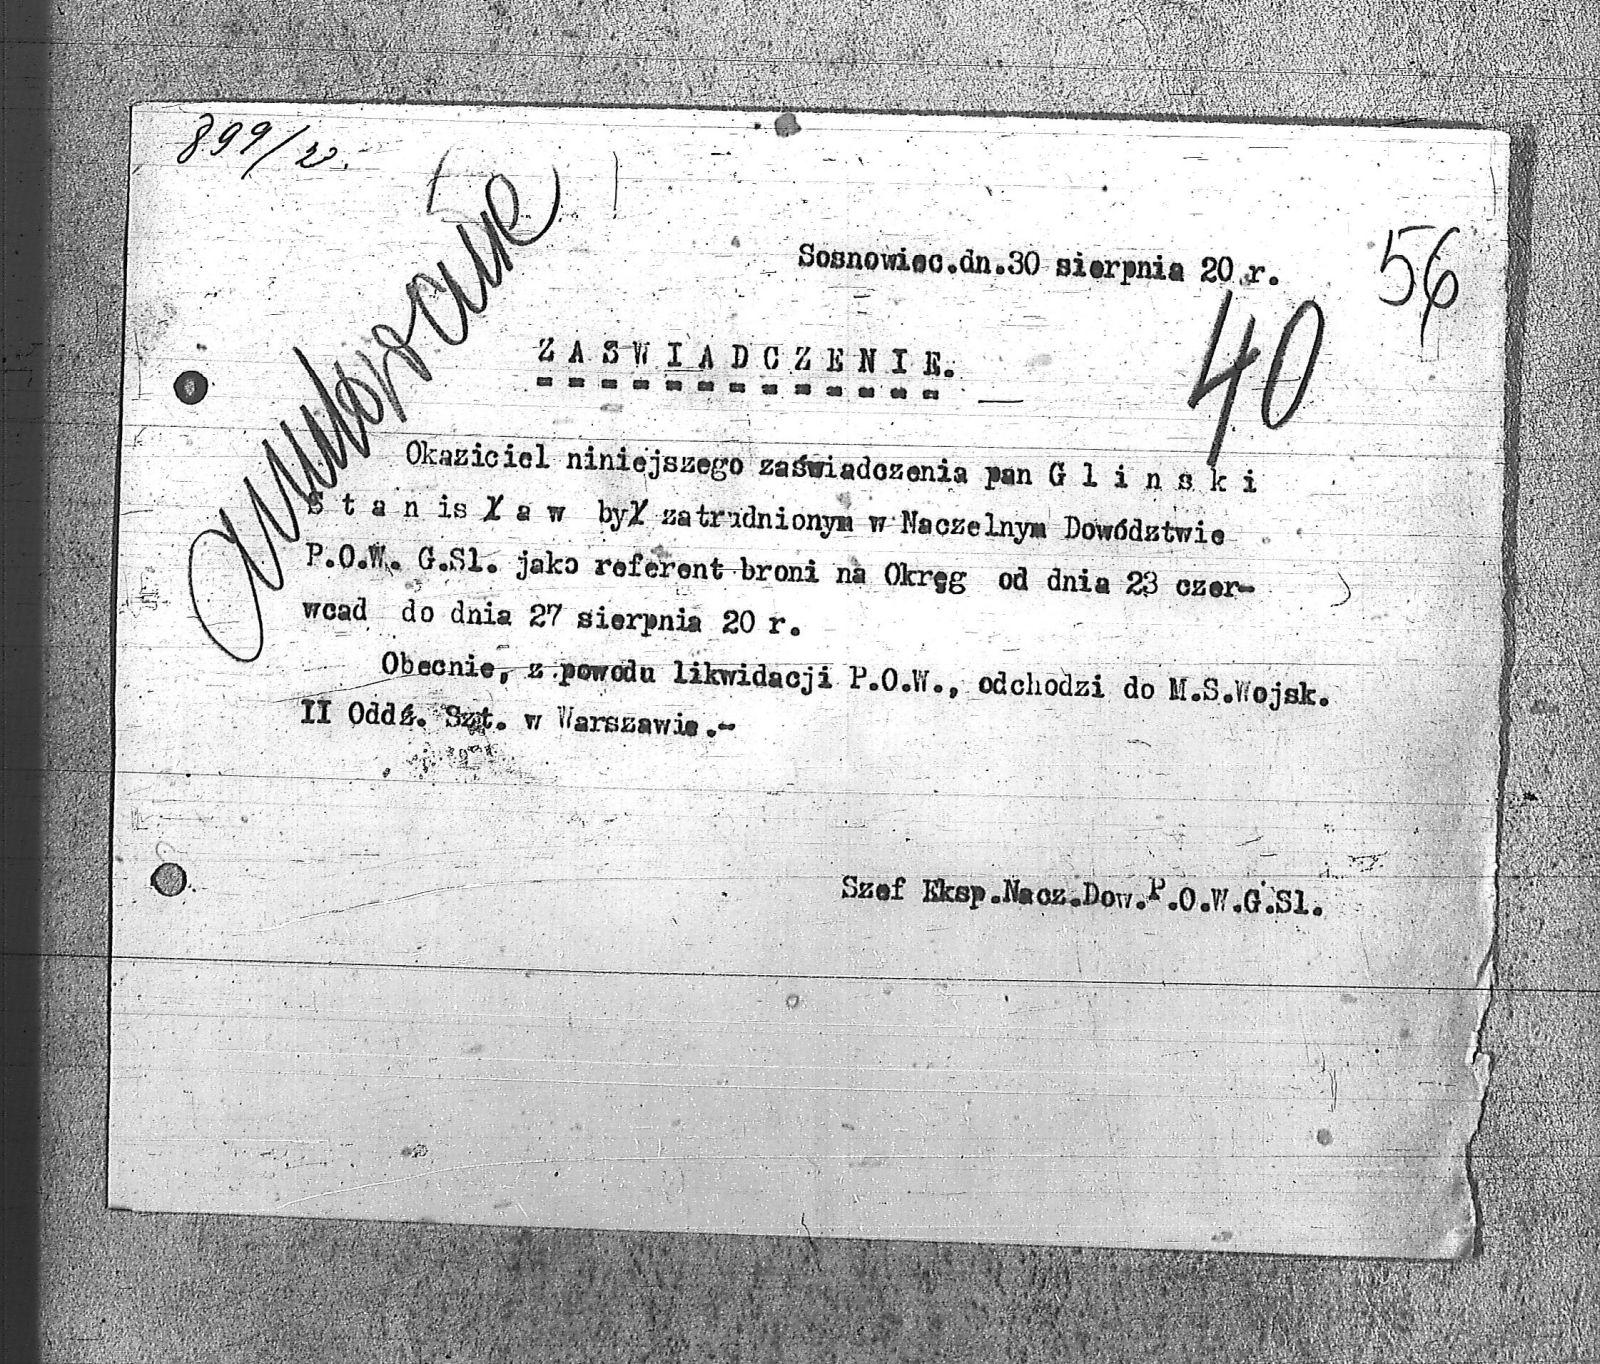 899/20.
anulowanie
Sosnowiec.dn.30 sierpnia 20 r.
56
40
ZASWIADCZENIE.
Okaziciel niniejszego zaświadczenia pan G l i n s k i
S t a n i s ł a w był zatrudnionym w Naczelnym Dowództwie
P.O.W. G.Sl. jako referent broni na Okręg od dnia 23 czer-
wcad do dnia 27 sierpnia 20 r.
Obecnie, z powodu likwidacji P.O.W., odchodzi do M.S.Wojsk.
II Oddź. Szt. w Warszawie.-
Szef Eksp.Nacz.Dow.P.O.W.G.Sl.